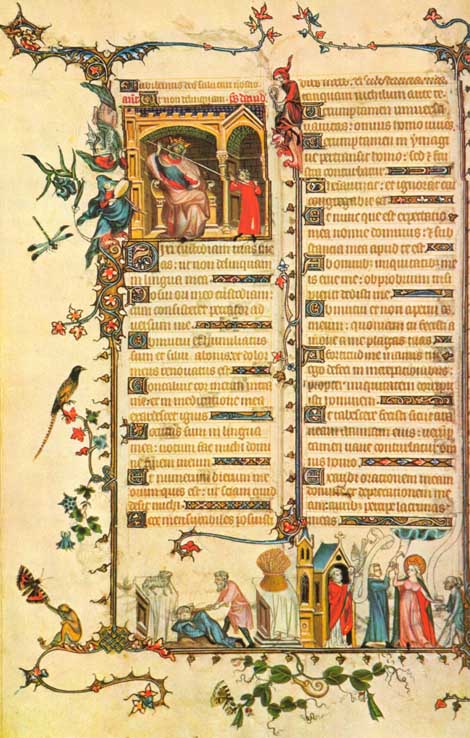 ut non delinquam
in lingua mea
Posui ori meo custodiam:
cum consisteret peccator ad
versum me
Obmutui et humiliatus
sum et silui a bonis: et dolor
meus renovatus est
Concaluit cor meum intra
me: et in meditatione mea
exardescet ignis
Locutus sum in lingua
mea: notum fac michi domi
ne finem meum
Et numerum dierum me
orum quis est: ut sciam quid
desit michi
Ecce mensurabiles posuisti
tanquam nichilum ante te
Verumptamen universa
vanitas: omnis homo vivens
Verumptamen in ymagi
ne pertransit homo: sed et frus
tra conturbatur
Thesaurizat: et ignorat cui
congregabit ea
Et nunc que est expectatio
mea nonne dominus: et sub
stancia mea apud te est
Ab omnibus iniquitatibus me
is erue me: obprobrium insipi
enti dedisti me
Obmutui et non aperui os
meum: quoniam tu fecisti a
move a me plagas tuas
A fortitudine manus tue e
go defeci in increpationibus:
propter iniquitatem corripu
isti hominem
Et tabescere fecisti sicut ara
neam animam eius: verum
tamen vane conturbatur om
nis homo
Exaudi orationem meam
domine et deprecationem meam
auribus percipe lacrimas
meas